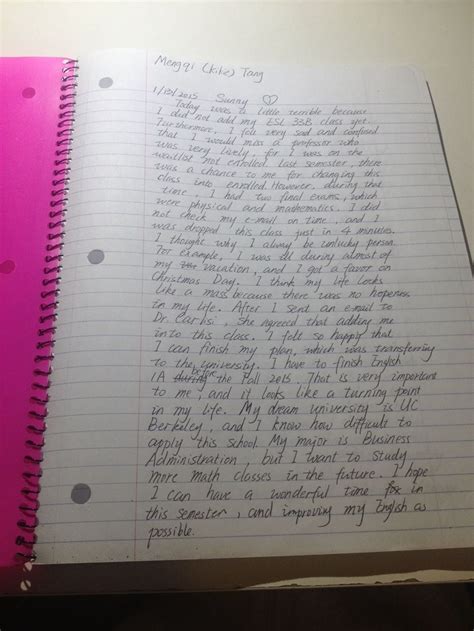 Mengqi (kiki) Tang
1/12/2015 Sunny ♡
Today was a little terrible because
I did not add my ESL 33B class yet.
Furthermore, I felt very sad and confused
that I would miss a professor who
was very lively, for I was on the
waitlist not enrolled last semester, there
was a chance to me for changing this
class into enrolled. However, during that
time, I had two final exams, which
were physical and mathematics. I did
not check my e-mail on time, and I
was dropped this class just in 4 minutes.
I thought why I alway be unlucky person.
For example, I was ill during almost of
my vacation, and I got a favor on
Christmas Day. I think my life looks
like a mass because there was no hopeness
in my life. After I send an e-mail to
Dr. , She agreed that adding me
into this class. I felt so happy that
I can finish my plan, which was transferring
to the university. I have to finish English
1A before the Fall 2015. That is very important
to me, and it looks like a turning point
in my life. My dream university is UC
Berkeley, and I know how difficult to
apply this school. My major is Business
Administration, but I want to study
more math classes in the future. I hope
I can have a wonderful time in
this semester, and improving my English as
possible.